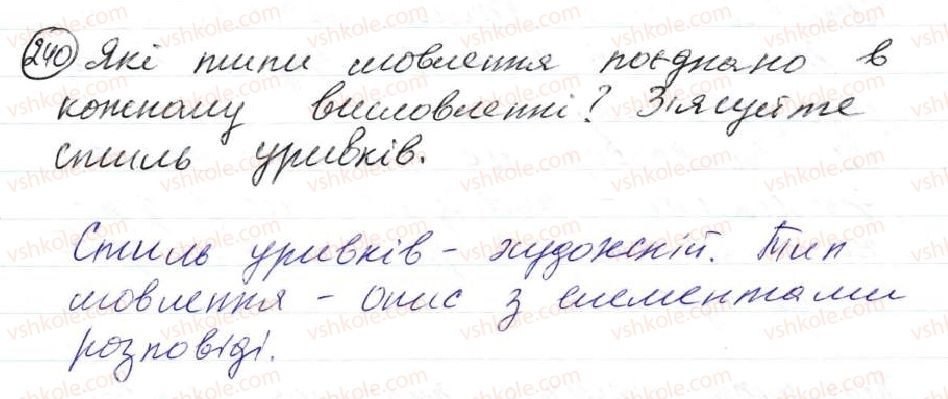 240 Які типи мовлення поєднано в
кожному висловленні? Зʼясуйте
стиль уривків.
Стиль уривків - художній. Тип
мовлення - опис з елементами
розповіді.
vshkole.com